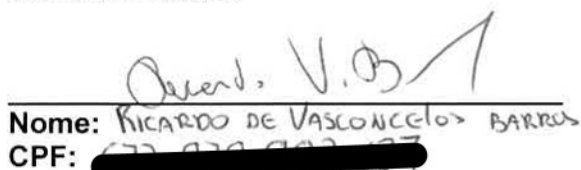 V. B
Nome: RICARDO DE VASCONCELOS BARROS
CPF: